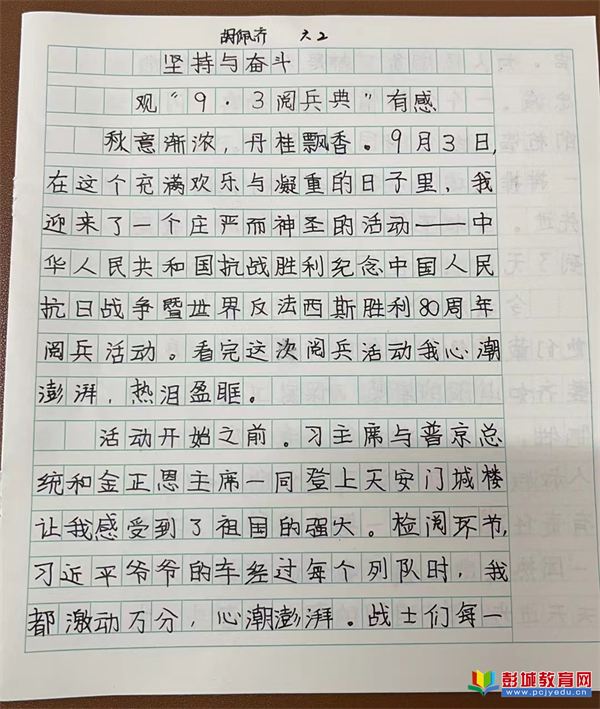 胡佩齐 六2
坚持与奋斗
观“9·3阅兵典”有感
秋意渐浓，丹桂飘香。9月3日，
在这个充满欢乐与凝重的日子里，我
迎来了一个庄严而神圣的活动——中
华人民共和国抗战胜利纪念中国人民
抗日战争暨世界反法西斯胜利80周年
阅兵活动。看完这次阅兵活动我心潮
澎湃，热泪盈眶。
活动开始之前。习主席与普京总
统和金正恩主席一同登上天安门城楼
让我感受到了祖国的强大。检阅环节，
习近平爷爷的车经过每个列队时，我
都激动万分，心潮澎湃。战士们每一
彭城教育网
www.pcjyedu.cn